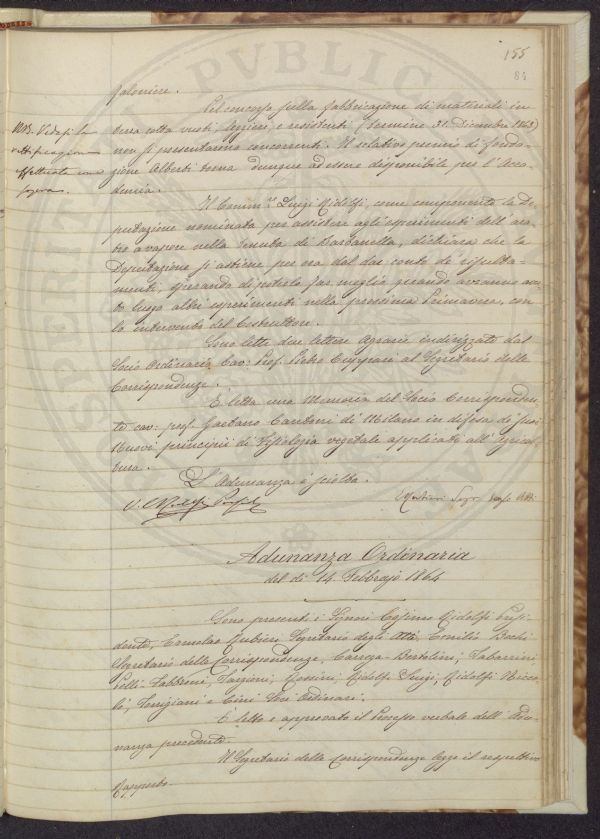 155
84
Pel concorso sulla fabbricazione di materiali in
terra cotta vuoti, leggieri, e resistenti (termine 31. Dicembre 1863)
non si presentarono concorrenti. Il relativo premio di fonda-
zione Alberti torna dunque ad essere disponibile per l'Acca-
demia.
NB. Vedasi la
rettificazione
effettuata
Il Comm.re Luigi Ridolfi, come componente la De-
putazione nominata per assistere agli esperimenti dell'ara-
tro a vapore nella Tenuta di Barbanella, dichiara che la
Deputazione si astiene per ora dal dar conto de' risulta-
menti, sperando di poterlo far meglio quando avranno avu-
to luogo altri esperimenti nella prossima Primavera, con
lo intervento del Costruttore.
Sono lette due lettere Agrarie indirizzate dal
Socio Ordinario Cav: Prof. Pietro Cuppari al Segretario delle
Corrispondenze.
È letta una Memoria del Socio Corrisponden-
te cav: prof. Gaetano Cantoni di Milano in difesa di suoi
Nuovi principii di Fisiologia vegetale applicata all'agricol-
tura.
L'Adunanza è sciolta.
V. C. Ridolfi
Segr. degli Atti
Adunanza Ordinaria
del dì 14 Febbrajo 1864
Sono presenti i Signori Cosimo Ridolfi Presi-
dente, Ermolao Rubieri Segretario degli Atti, Emilio Bechi
Segretario delle Corrispondenze, Carega-Bertolini, Tabarrini,
Pelli-Fabbroni, Targioni, Ridolfi Luigi, Ridolfi Nicco-
lò, e Cini Soci Ordinari.
È letto e approvato il Processo verbale dell'Adu-
nanza precedente.
Il Segretario delle Corrispondenze legge il respettivo
Rapporto.